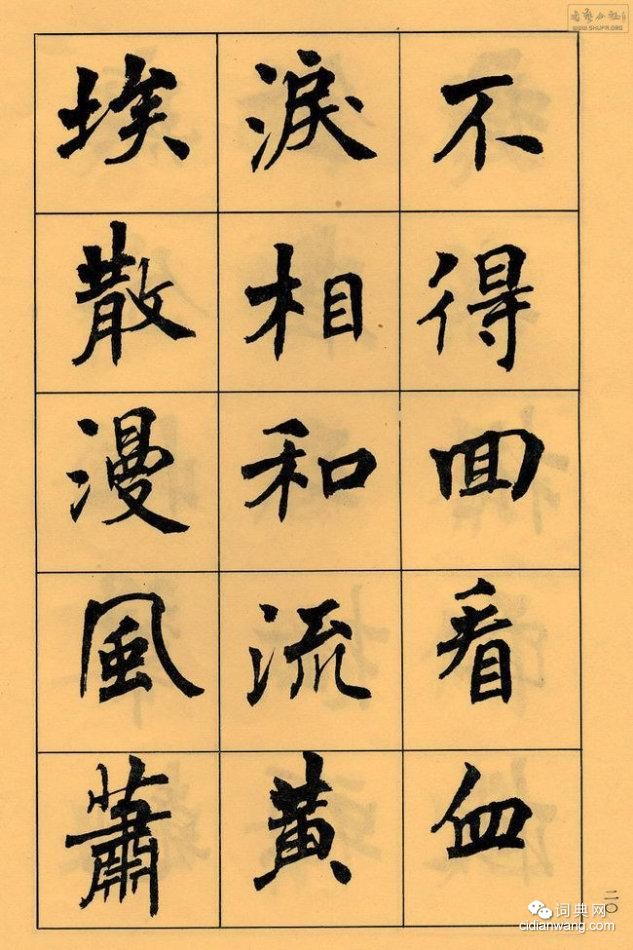 不得回看血
淚相和流黃
埃散漫風蕭
二〇
WWW.SHUFA.ORG
词典网
cidianwang.com